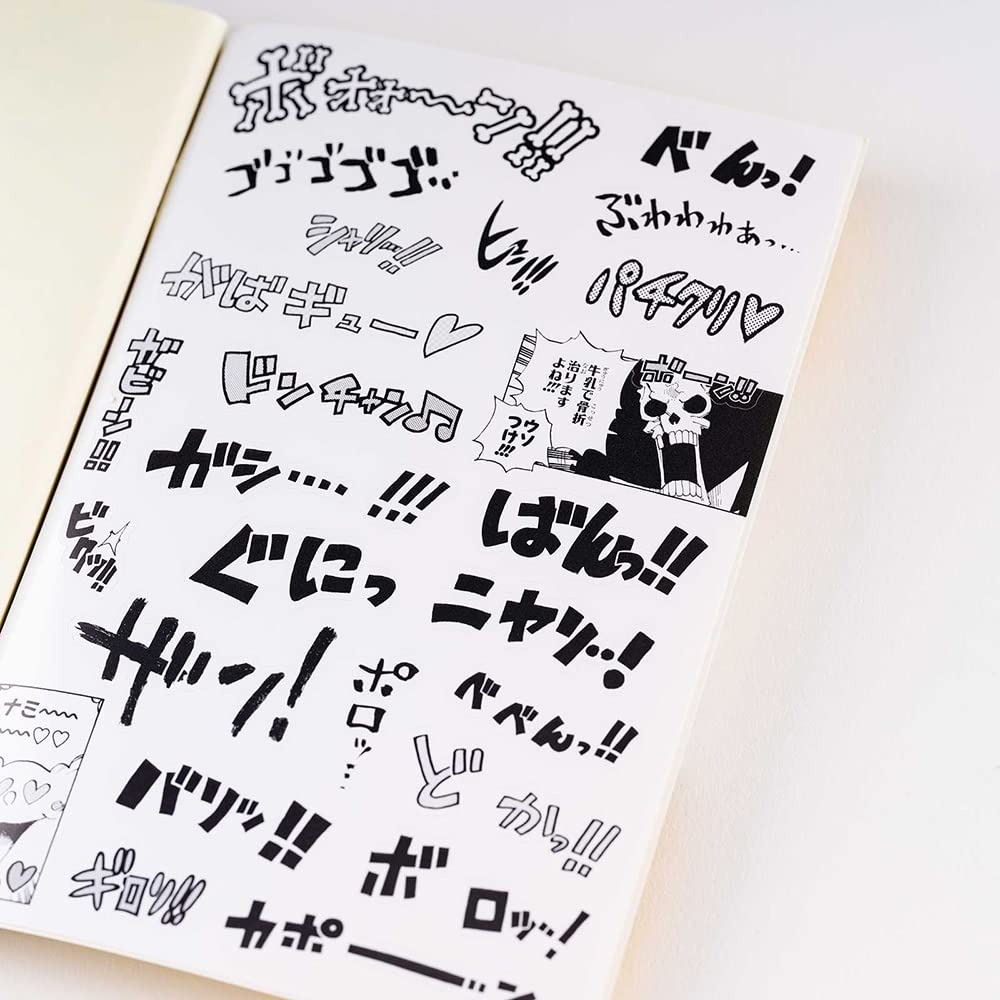 ボォォ〜ン!!
べんっ!
ゴゴゴゴゴ…
ぶわわわぁっ…
シャリッ!!
ヒュン!!!
パチクリ♡
がばギュー♡
ギラーン
ランチャン♪
牛乳で骨折
治ります
よね!!!
ウソ
つけ!!!
ボーン!!
ガシ…. !!!
ばんっ!!
ビクッ!!
ぐにっ
ニヤリ…!
ザン!
ポロッ…
べべんっ!!
ナミ〜〜
〜〜♡♡
どかっ!!
バリッ!!
ボロッ…!
ギロッ!!
カポーン